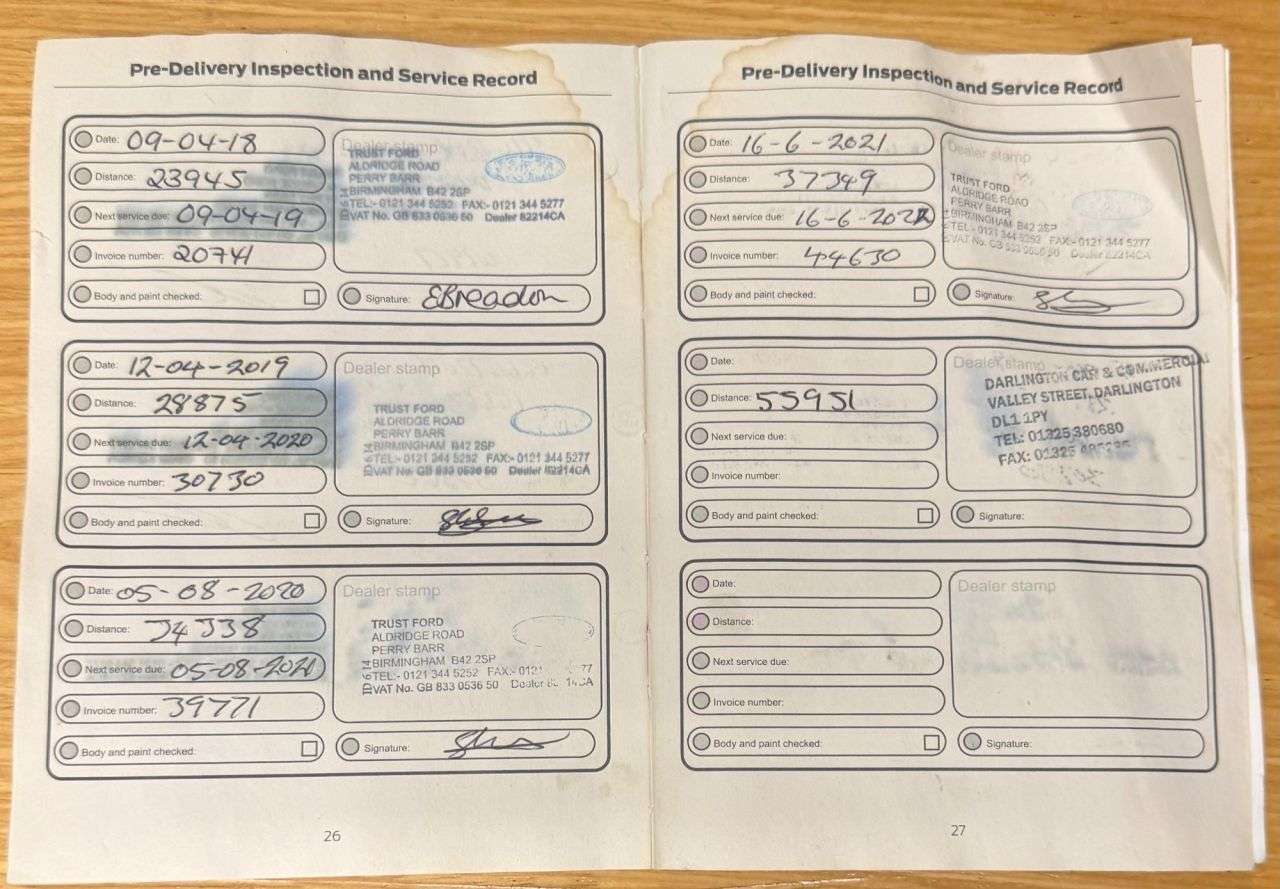 Pre-Delivery Inspection and Service Record
Date: 09-04-18
Distance: 23945
Next service due: 09-04-19
Invoice number: 20741
Dealer stamp
TRUST FORD
ALDRIDGE ROAD
PERRY BARR
BIRMINGHAM B42 2SP
TEL:- 0121 344 5252 FAX:- 0121 344 5277
VAT No. GB 833 0536 50 Dealer 82214CA
Body and paint checked:
Signature: EBreadon
Date: 12-04-2019
Distance: 28875
Next service due: 12-04-2020
Invoice number: 30730
Dealer stamp
TRUST FORD
ALDRIDGE ROAD
PERRY BARR
BIRMINGHAM B42 2SP
TEL:- 0121 344 5252 FAX:- 0121 344 5277
VAT No. GB 833 0536 50 Dealer 82214CA
Body and paint checked:
Signature:
Date: 05-08-2020
Distance: 34338
Next service due: 05-08-2021
Invoice number: 39771
Dealer stamp
TRUST FORD
ALDRIDGE ROAD
PERRY BARR
BIRMINGHAM B42 2SP
TEL:- 0121 344 5252 FAX:- 0121 77
VAT No. GB 833 0536 50 Dealer 82 14CA
Body and paint checked:
Signature:
26
Pre-Delivery Inspection and Service Record
Date: 16-6-2021
Distance: 37349
Next service due: 16-6-2022
Invoice number: 44630
Dealer stamp
TRUST FORD
ALDRIDGE ROAD
PERRY BARR
BIRMINGHAM B42 2SP
TEL:- 0121 344 5252 FAX:- 0121 344 5277
VAT No. GB 833 0536 50 Dealer 82214CA
Body and paint checked:
Signature:
Date:
Distance: 55951
Next service due:
Invoice number:
Dealer stamp
DARLINGTON CAR & COMMERCIAL
VALLEY STREET, DARLINGTON
DL1 1PY
TEL: 01325 380680
FAX: 01325
Body and paint checked:
Signature:
Date:
Distance:
Next service due:
Invoice number:
Dealer stamp
Body and paint checked:
Signature:
27